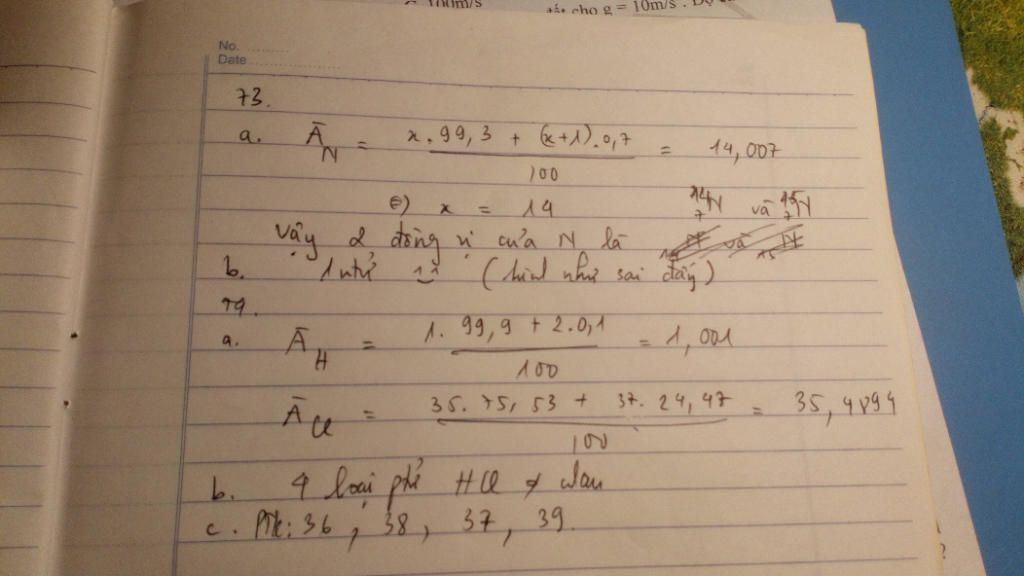 100m/s
cho g = 10m/s
No. ..........
Date ....................
73.
a. Ā_N = (x.99,3 + (x+1).0,7) / 100 = 14,007
⇔) x = 14
¹⁴₇N và ¹⁵₇N
Vậy 2 đồng vị của N là
b. 1 ntử :) (hình như sai đấy)
74.
a. Ā_H = (1. 99,9 + 2.0,1) / 100 = 1,001
Ā_Cl = (35. 75,53 + 37. 24,47) / 100 = 35,4894
b. 4 loại ptử HCl ≠ nhau
c. Ptk: 36, 38, 37, 39.
?